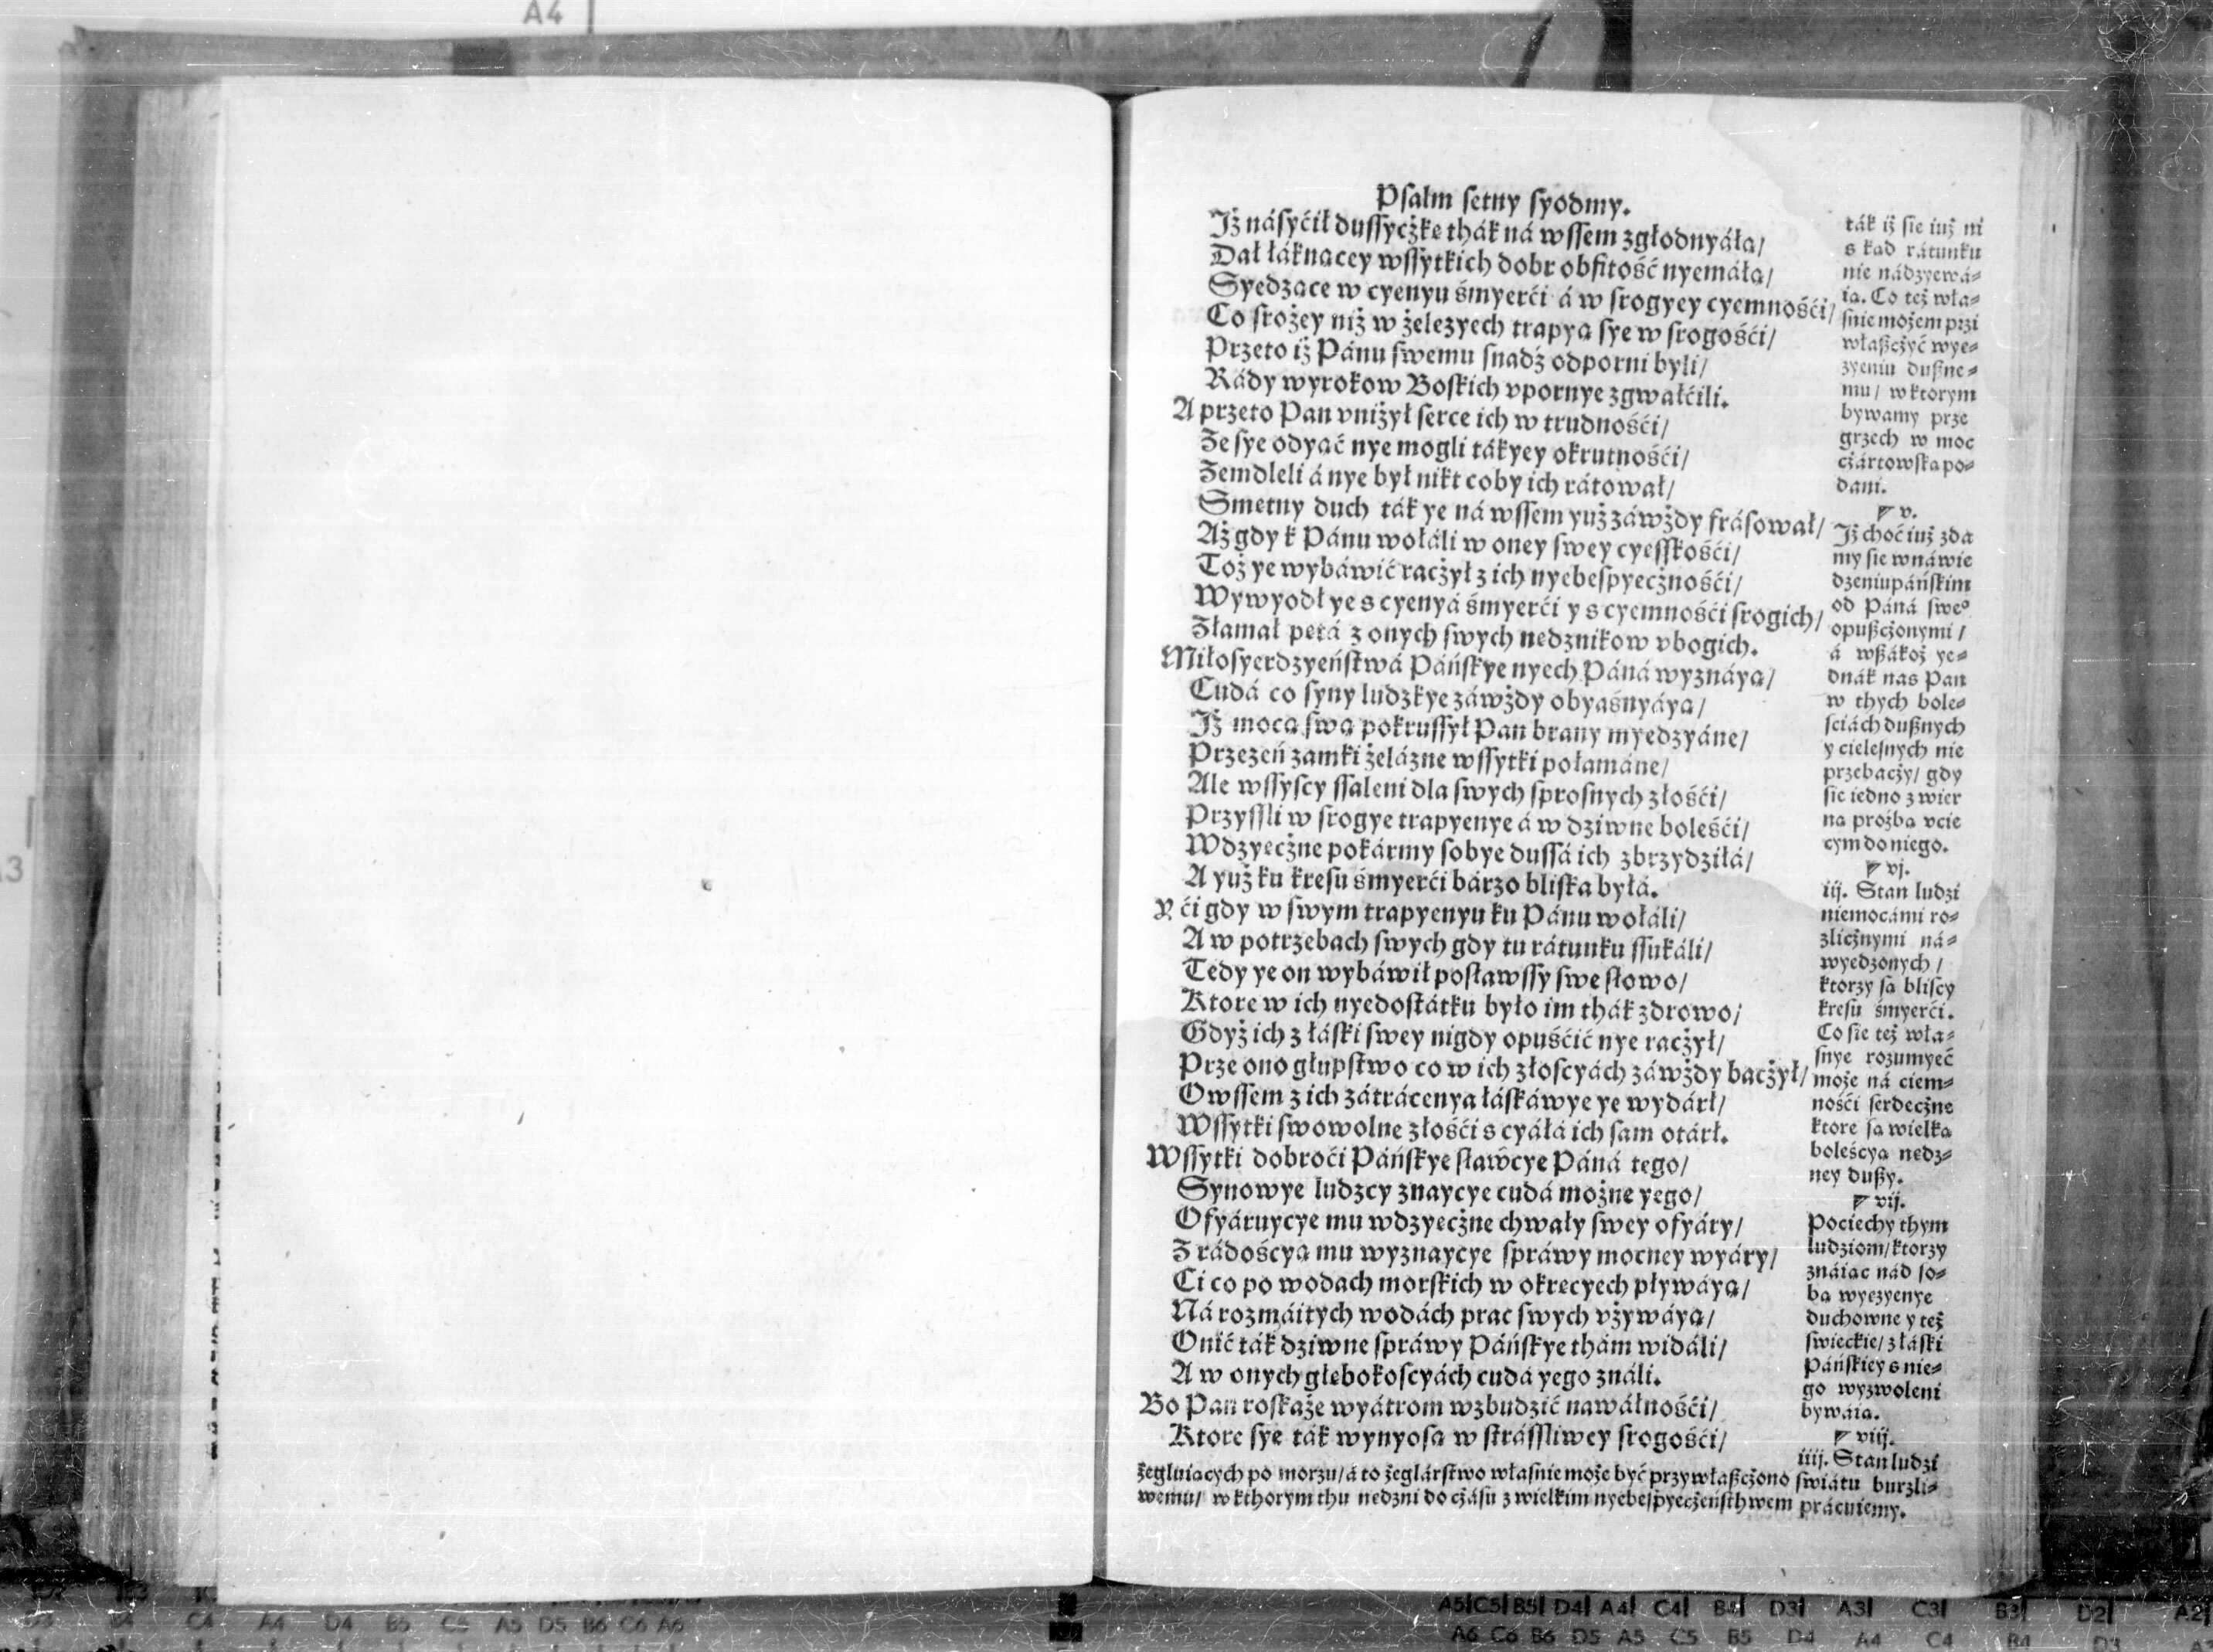 Psalm setny syodmy.
Jż násyćił dussyczke thák ná wssem zgłodnyáła/
Dał łáknacey wssytkich dobr obfitość nyemáła/
Syedzace w cyenyu śmyerći á w srogyey cyemnośći/
Co srożey niż w żelezyech trapya sye w srogośći/
Przeto iż Pánu swemu snadź odporni byli/
Rády wyrokow Boskich vpornye zgwałćili.
A przeto Pan vniżył serce ich w trudnośći/
Ze sye odyać nye mogli tákyey okrutnośći/
Zemdleli á nye był nikt coby ich rátował/
Smetny duch ták ye ná wssem yuż záwżdy frásował/
Aż gdy k Pánu wołáli w oney swey cyesskośći/
Toż ye wybáwić raczył z ich nyebespyecznośći/
Wywyodł ye s cyenyá śmyerći y s cyemnośći srogich/
Złamał petá z onych swych nedznikow vbogich.
Miłosyerdzyeństwá Páńskye nyech Páná wyznáya/
Cudá co syny ludzkye záwżdy obyaśnyáya/
Jż moca swa pokrussył Pan brany myedzyáne/
Przezeń zamki żelázne wssytki połamáne/
Ale wssyscy ssaleni dla swych sprosnych złośći/
Przyssli w srogye trapyenye á w dziwne boleśći/
Wdzyeczne pokármy sobye dussá ich zbrzydziłá/
A yuż ku kresu śmyerći bárzo bliska byłá.
Y ći gdy w swym trapyenyu ku Pánu wołáli/
A w potrzebach swych gdy tu rátunku ssukáli/
Tedy ye on wybáwił posławssy swe słowo/
Ktore w ich nyedostátku było im thák zdrowo/
Gdyż ich z łáski swey nigdy opuśćić nye raczył/
Prze ono głupstwo co w ich złoscyách záwżdy baczył/
Owssem z ich zátrácenya łáskáwye ye wydárł/
Wssytki swowolne złośći s cyáłá ich sam otárł.
Wssytki dobroći Páńskye sławćye Páná tego/
Synowye ludzcy znaycye cudá możne yego/
Ofyáruycye mu wdzyeczne chwały swey ofyáry/
Z rádośćya mu wyznaycye spráwy mocney wyáry/
Ci co po wodach morskich w okrecyech pływáya/
Ná rozmáitych wodách prac swych vżywáya/
Onić ták dziwne spráwy Páńskye thám widáli/
A w onych głebokoscyách cudá yego ználi.
Bo Pan roskaże wyátrom wzbudzić nawáłnośći/
Ktore sye ták wynyosa w strássliwey srogośći/
ták iż sie iuż ni
s kad rátunku
nie nádzyewá⸗
ia. Co też wła⸗
snie możem przi
właßczyć wye⸗
zyeniu dußne⸗
mu/ w ktorym
bywamy prze
grzech w moc
czártowska po⸗
dani.
v.
Jż choć iuż zda
my sie w náwie
dzeniu páńskim
od Páná swe°
opußczonymi /
á wßákoż ye⸗
dnák nas Pan
w thych bole⸗
sciách dußnych
y cielesnych nie
przebaczy/ gdy
sie iedno z wier
na proźba vcie
cym do niego.
vj.
iij. Stan ludzi
niemocámi ro⸗
zlicznymi ná⸗
wyedzonych /
ktorzy sa bliscy
kresu śmyerći.
Co sie też wła⸗
snye rozumyeć
może ná ciem⸗
nośći serdeczne
ktore sa wielka
bolescya nedz⸗
ney dußy.
vij.
Pociechy thym
ludziom/ ktorzy
znáiac nád so⸗
ba wyezyenye
duchowne y też
swieckie/ z łáski
Páńskiey s nie⸗
go wyzwoleni
bywáia.
viij.
iiij. Stan ludzi
żegluiacych po morzu/ á to żeglárstwo własnie może być przywłaßczono swiátu burzli⸗
wemu/ w kthorym thu nedzni do czásu z wielkim nyebespyeczeństhwem prácuiemy.